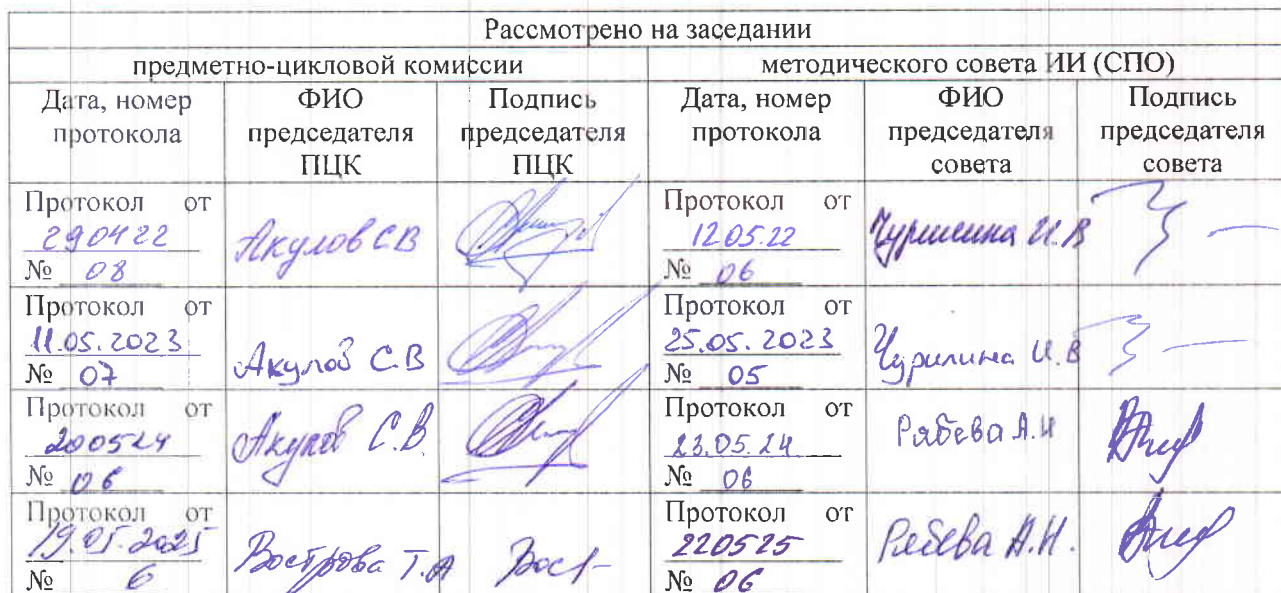 Рассмотрено на заседании
предметно-цикловой комиссии методического совета ИИ (СПО)
Дата, номер протокола ФИО председателя ПЦК Подпись председателя ПЦК Дата, номер протокола ФИО председателя совета Подпись председателя совета
Протокол от
290422
№ 08
Акулов СВ
Протокол от
12 05.22
№ 06
Чурилина И.В
Протокол от
11.05.2023
№ 07
Акулов С.В
Протокол от
25.05.2023
№ 05
Чурилина И.В
Протокол от
200524
№ 06
Акулов С.В.
Протокол от
23.05.24
№ 06
Рябева А.Н
Протокол от
19.05.2025
№ 6
Вострова Т.А
Вост
Протокол от
220525
№ 06
Рябева А.Н.